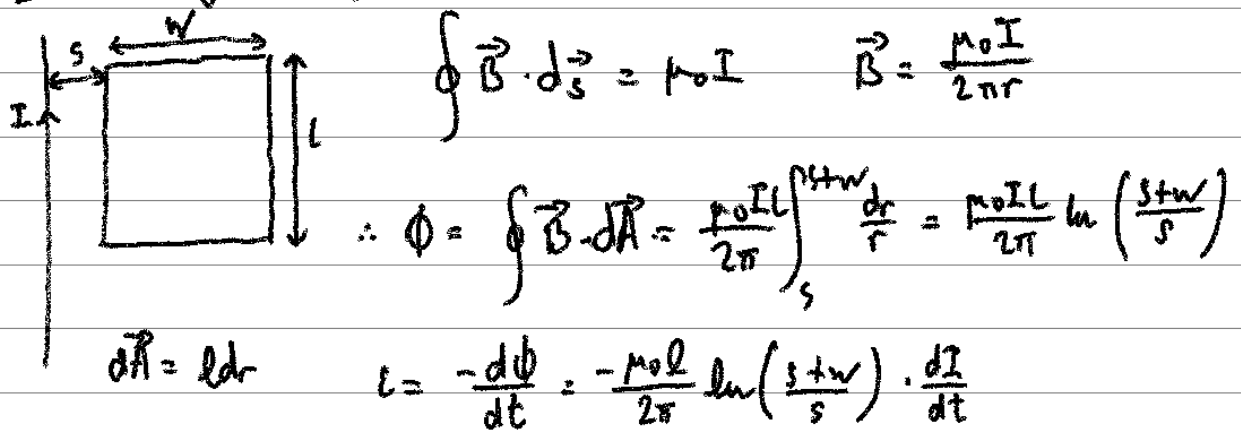 w
s
I
l
∮ B⃗ · ds⃗ = μ₀I    B⃗ = μ₀I / 2πr
∴ ϕ = ∮ B⃗ · dA⃗ = μ₀Il / 2π ∫ₛˢ⁺ʷ dr / r = μ₀Il / 2π ln (s+w / s)
dA⃗ = ldr    ε = -dϕ / dt = -μ₀l / 2π ln (s+w / s) · dI / dt